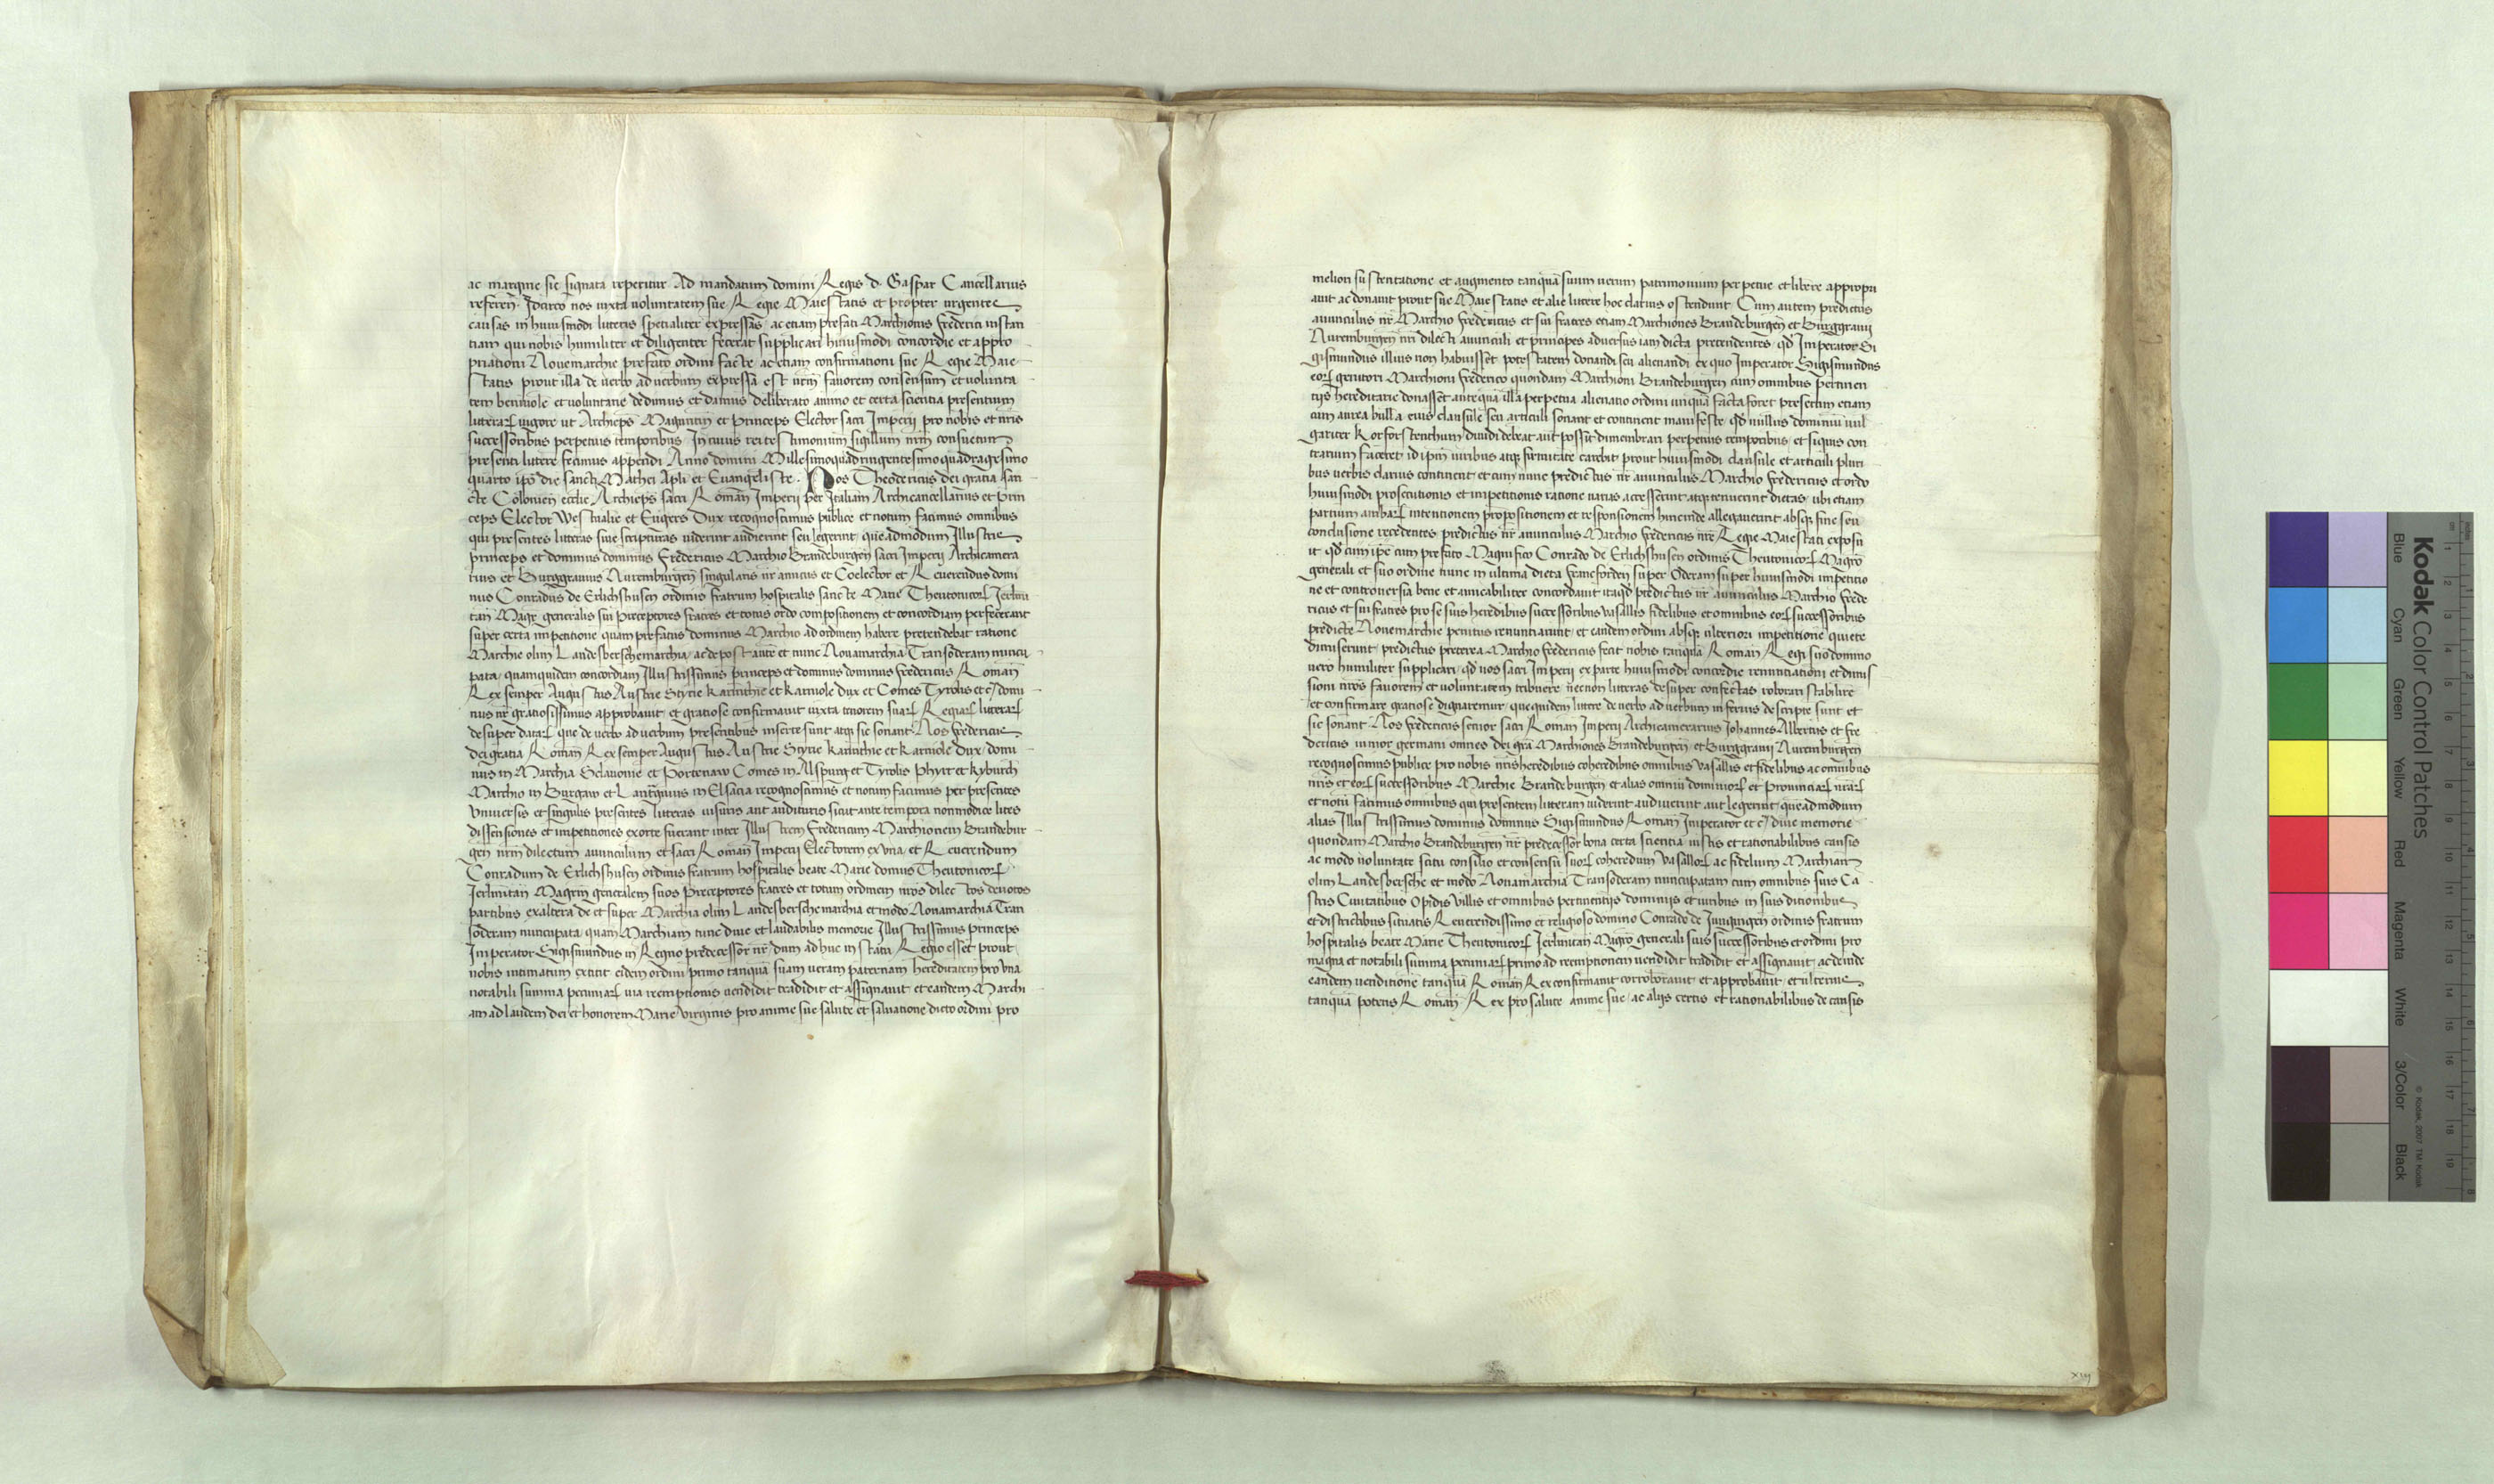 ac margine sic signata reperitur Ad mandatum domini Regis d. Gaspar Cancellarius
referen̄ Idcirco nos iuxta uoluntatem sue Regie Maiestatis et propter urgentes
causas in huiusmodi litteris spetialiter expressas ac etiam prefati Marchionis Frederici instan
tiam qui nobis humiliter et diligenter fecerat supplicari huiusmodi concordie et appro
priationi Nouemarchie prefato ordini facte ac etiam confirmationi sue Regie Maie
statis prout illa de uerbo ad uerbum expressa est nr̄m fauorem consensum et uolunta
tem beniuole et uoluntarie dedimus et damus deliberato animo et certa scientia presentium
litterarꝝ uigore ut Archiepūs Maguntin̄ et Princeps Elector sacri Imperij pro nobis et nr̄is
successoribus perpetuis temporibus In cuius rei testimonium sigillum nr̄m consuetum
presenti littere fecimus appendi Anno domini Millesimoquadringentesimoquadragesimo
quarto ipō die sancti Mathei Apl̄i et Euangeliste. Nos Theodericus dei gratia san
cte Colonien̄ eccl̄ie Archiepūs sacri Roman̄ Imperij per Italiam Archicancellarius et Prin
ceps Elector Westualie et Engers Dux recognoscimus publice et notum facimus omnibus
qui presentes litteras siue scripturas uiderint audierint seu legerint queadmodum Illustris
princeps et dominus dominus Fredericus Marchio Brandeburgen̄ sacri Imperij Archicamera
rius et Burggrauius Nuremburgen̄ singularis nr̄ amicus et Coelector et Reuerendus domi
nus Conradus de Erlichshusen ordinis fratrum hospitalis sancte Marie Theutonicorꝝ Jerl̄mi
tan̄ Magr̄ generalis sui Preceptores fratres et totus ordo compositionem et concordiam perfecerant
super certa impetitione quam prefatus dominus Marchio ad ordinem habere pretendebat ratione
Marchie olim Landesberschemarchia ac de post ante et nunc Nouamarchia Transoderam nuncu
pata quamquidem concordiam Illustrissimus princeps et dominus dominus Fredericus Roman̄
Rex semper Augustus Austrie Styrie Karinthie et Karniole Dux et Comes Tyrolis etc̄ domi
nus nr̄ gratiosissimus approbauit et gratiose confirmauit iuxta tenorem suarꝝ Regiarꝝ litterarꝝ
desuper datarꝝ que de uerbo ad uerbum presentibus inserte sunt atqꝫ sic sonant Nos Fredericus
dei gratia Roman̄ Rex semper Augustus Austrie Styrie Karinthie et Karniole Dux domi
nus in Marchia Sclauonie et Portenaw Comes in Alspurg et Tyrolis Phyrt et Kyburch
Marchio in Burgaw et Lantgrauius in Elsacia recognoscimus et notum facimus per presentes
Vniuersis et singulis presentes litteras uisuris aut audituris sicut ante tempora nonmodice lites
dissensiones et impetitiones exorte fuerant inter Illustrem Fredericum Marchionem Brandebur
gen̄ nr̄m dilectum auunculum et sacri Roman̄ Imperij Electorem ex vna et Reuerendum
Conradum de Erlichshusen ordinis fratrum hospitalis beate Marie domus Theutonicorꝝ
Jerl̄mitan̄ Magr̄m generalem suos Preceptores fratres et totum ordinem nr̄os dilectos deuotos
partibus ex altera de et super Marchia olim Landesberschemarchia et modo Nouamarchia Tran
soderam nuncupata quam Marchiam tunc diue et laudabilis memorie Illustrissimus princeps
Imperator Sigismundus in Regno predecessor nr̄ dum adhuc in statu Regio esset prout
nobis intimatum extitit eidem ordini primo tanquā suam ueram paternam hereditatem pro vna
notabili summa pecuniarꝝ uia reemptionis uendidit tradidit et assignauit et eandem Marchi
am ad laudem dei et honorem Marie virginis pro anime sue salute et saluatione dicto ordini pro
meliori sustentatione et augmento tanquā suum uerum patrimonium perpetue et libere appropri
auit ac donauit prout sue Maiestatis et alie littere hoc clarius ostendunt Cum autem predictus
auunculus nr̄ Marchio Fredericus et sui fratres etiam Marchiones Brandeburgen̄ et Burggrauij
Nuremburgen̄ nr̄i dilecti auunculi et principes aduersus iam dicta pretendentes qd̄ Imperator Si
gismundus illius non habuisset potestatem donandi seu alienandi ex quo Imperator Sigismundus
eorꝝ genitori Marchioni Frederico quondam Marchioni Brandeburgen̄ cum omnibus pertinen
tijs hereditarie donasset antequā illa perpetua alienatio ordini unquā facta foret presertim etiam
cum aurea bulla eius clausule seu articuli sonant et continent manifeste qd̄ nullus dominiū uul
gariter Korforstenthum diuidi debeat aut possit dimembrari perpetuis temporibus et siquis con
trarium faceret id ipm̄ uiribus atqꝫ firmitate carebit prout huiusmodi clausule et articuli pluri
bus uerbis clarius continent et cum nunc predictus nr̄ auunculus Marchio Fredericus et ordo
huiusmodi prosecutionis et impetitionis ratione uarias accesserint atqꝫ tenuerint dietas ubi etiam
partium ambarꝝ intentionem propositionem et responsionem hincinde allegauerint absqꝫ fine seu
conclusione recedentes predictus nr̄ auunculus Marchio Fredericus nr̄e Regie Maiestati exposu
it qd̄ cum ipē cum prefato Magnifico Conrado de Erlichshusen ordinis Theutonicorꝝ Magr̄o
generali et suo ordine nunc in ultima dieta Francforden̄ super Oderam super huiusmodi impetitio
ne et controuersia bene et amicabiliter concordauit itaqd̄ predictus nr̄ auunculus Marchio Frede
ricus et sui fratres pro se suis heredibus successoribus Vasallis fidelibus et omnibus eorꝝ successoribus
predicte Nouemarchie penitus renuntiarunt et eandem ordini absqꝫ ulteriori impetitione quiete
dimiserunt predictus preterea Marchio Fredericus fecit nobis tanquā Roman̄ Regi suo domino
uero humiliter supplicari qd̄ nos sacri Imperij ex parte huiusmodi concordie renuntiationi et dimis
sioni nr̄os fauorem et uoluntatem tribuere necnon litteras desuper confectas roborari stabilire
et confirmare gratiose dignaremur quequidem littere de uerbo ad uerbum inferius descripte sunt et
sic sonant Nos Fredericus senior sacri Roman̄ Imperij Archicamerarius Johannes Albertus et Fre
dericus iunior germani omnes dei gr̄a Marchiones Brandeburgen̄ et Burggrauij Nuremburgen̄
recognoscimus publice pro nobis nr̄is heredibus coheredibus omnibus Vasallis et fidelibus ac omnibus
nr̄is et eorꝝ successoribus Marchie Brandeburgen̄ et alias omniū dominiorꝝ et Prouinciarꝝ nr̄arꝝ
et notū facimus omnibus qui presentem litteram uiderint audiuerint aut legerint queadmodum
alias Illustrissimus dominus dominus Sigismundus Roman̄ Imperator etc̄ diue memorie
quondam Marchio Brandeburgen̄ nr̄ predecessor bona certa scientia iustis et rationabilibus causis
ac modo uoluntate scitu consilio et consensu suorꝝ coheredum Vasallorꝝ ac fidelium Marchiam
olim Landesbersche et modo Nouamarchia Transoderam nuncupatam cum omnibus suis Ca
stris Ciuitatibus Opidis Villis et omnibus pertinentijs dominijs et iuribus in suis ditionibus
et districtibus situatis Reuerendissimo et religioso domino Conrado de Jungingen ordinis fratrum
hospitalis beate Marie Theutonicorꝝ Jerl̄mitan̄ Magr̄o generali suis successoribus et ordini pro
magna et notabili summa pecuniarꝝ primo ad reemptionem uendidit tradidit et assignauit ac deinde
eandem uenditionē tanquā Roman̄ Rex confirmauit corroborauit et approbauit et ulterius
tanquā potens Roman̄ Rex pro salute anime sue ac alijs certis et rationabilibus de causis